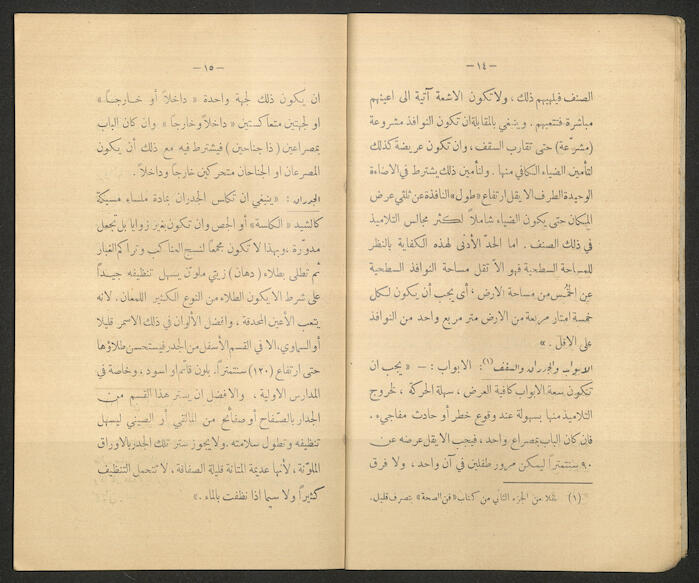 — ١٤ —
الصنف فيلهيهم ذلك، ولا تكون الاشعة آتية الى اعينهم
مباشرة فتتعبهم. وينبغي بالمقابلة ان تكون النوافذ مشروعة
(مشرّعة) حتى تقارب السقف، وان تكون عريضة كذلك
لتأمين الضياء الكافي منها. ولتأمين ذلك يشترط في الاضاءة
الوحيدة الطرف الا يقل ارتفاع «طول» النافذة عن ثلثي عرض
المكان حتى يكون الضياء شاملاً لكثر مجالس التلاميذ
في ذلك الصنف. اما الحدّ الأدنى لهذه الكفاية بالنظر
للمساحة السطحية فهو الاّ تقل مساحة النوافذ السطحية
عن الخُمس من مساحة الارض، أي يجب أن يكون لكل
خمسة امتار مربعة من الارض متر مربع واحد من النوافذ
على الاقل. »
الابواب والجدران والسقف (١): الابواب: — «يجب ان
تكون سعة الابواب كافية العرض، سهلة الحركة، لخروج
التلاميذ منها بسهولة عند وقوع خطر أو حادث مفاجيء.
فان كان الباب بمصراع واحد، فيجب الا يقل عرضه عن
٩٠ سنتمتراً ليمكن مرور طفلين في آن واحد، ولا فرق
(١) نقلا من الجزء الثاني من كتاب «فن الصحة» بتصرف قليل.
— ١٥ —
ان يكون ذلك لجهة واحدة « داخلاً أو خارجاً »
او لجهتين متعاكستين « داخلاً وخارجاً » وان كان الباب
بمصراعين (ذا جناحين) فيشترط فيه مع ذلك أن يكون
المصرعان او الجناحان متحركين خارجاً وداخلاً.
الجدران: «ينبغي ان تكلس الجدران بمادة ملساء مسيكة
كالشيد «الكلسة» أو الجص وان تكون بغير زوايا بل تجعل
مدوّرة. وبهذا لا تكون مجمعاً لنسج العناكب وتراكم الغبار
ثم تطلى بطلاء (دهان) زيتي ملون يسهل تنظيفه جيداً
على شرط الا يكون الطلاء من النوع الكثير اللمعان. لانه
يتعب الأعين المحدقة، وافضل الألوان في ذلك الاسمر قليلا
أو السماوي. الا في القسم الأسفل من الجدر فيستحسن طلاؤها
حتى ارتفاع (١٢٠) سنتمتراً. بلون قاتم او اسود، وخاصة في
المدارس الاولية، والافضل ان يستر هذا القسم من
الجدار بالصّفاح أو صفائح من المالقي أو الصيني ليسهل
تنظيفه وتطول سلامته. ولا يجوز ستر تلك الجدر بالاوراق
الملوّنة، لأنها عديمة المتانة قليلة الصفاقة، لا تتحمل التنظيف
كثيراً ولا سيما اذا نظفت بالماء. »